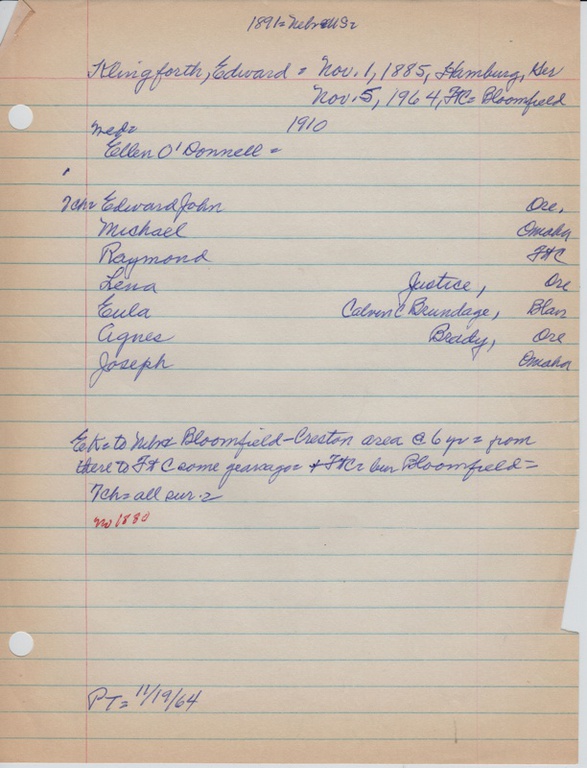 1891= Nebr
Klingforth, Edward = Nov. 1, 1885, Hamburg, Ger
Nov. 5, 1964, FtC= Bloomfield
med= 1910
Ellen O'Donnell =
7ch= Edward John Ore.
Michael Omaha
Raymond FtC
Lena Justice, Ore
Eula Calvin C Brundage, Blair
Agnes Beady, Ore
Joseph Omaha
EK= to Nebr Bloomfield-Creston area @ 6 yr = from
there to FtC some years ago= + FtC= bur Bloomfield=
7ch= all sur.=
no 1880
PT= 11/19/64